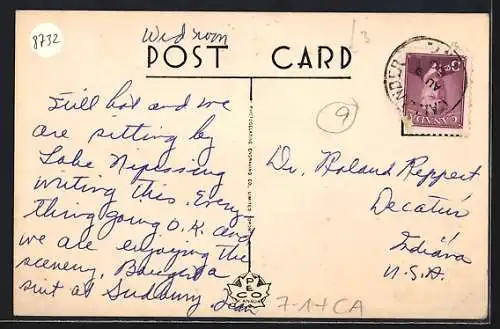 8732
Wed noon
POST CARD
3
9
Still hot and we
are sitting by
Lake Nipissing
writing this. Every
thing going O.K. and
we are enjoying the
scenery. Bought a
suit at Sudbury. Jean
Dr. Roland Reppert
Decatur
Indiana
U.S.A.
PHOTOGELATINE ENGRAVING CO. LIMITED
CALLANDER
AU
CANADA
3
PECO
CANADA
7-1+CA